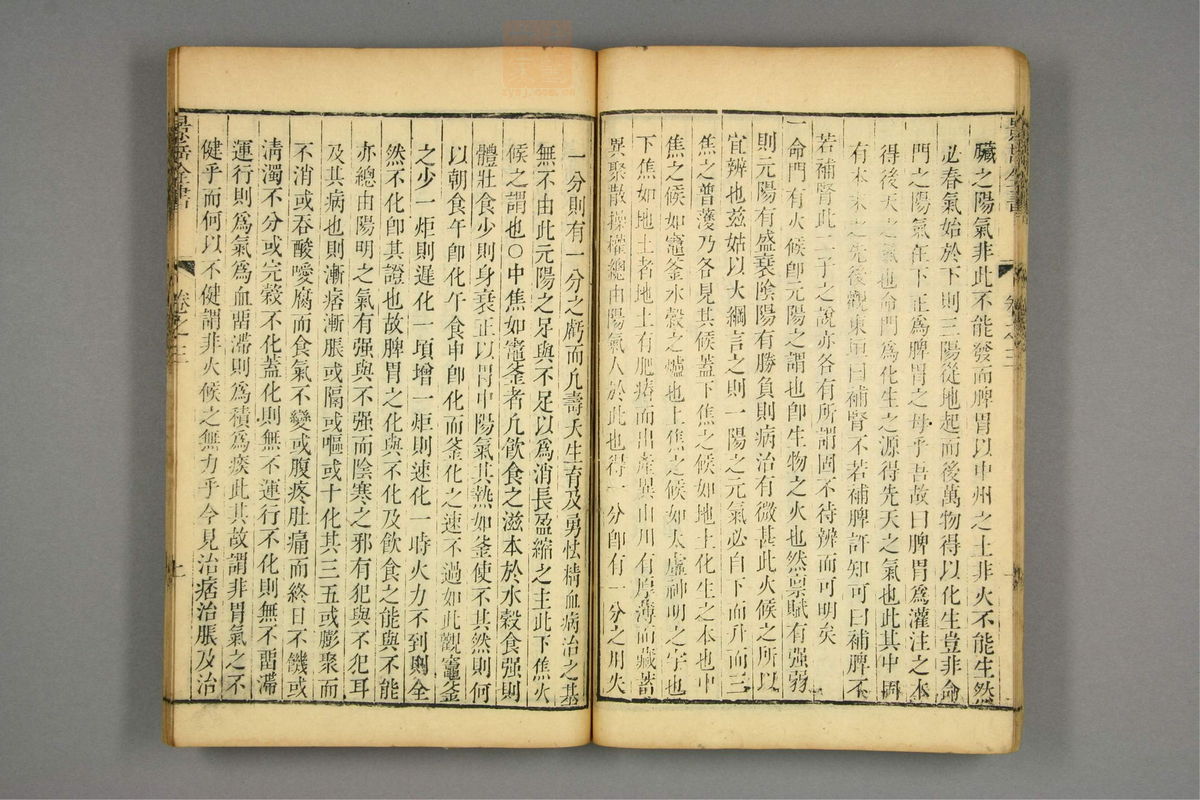 臟之陽氣非此不能發而脾胃以中州之土非火不能生然
必春氣始於下則三陽從地起而後萬物得以化生豈非命
門之陽氣在下正為脾胃之母乎吾故曰脾胃為灌注之本
得後天之氣也命門為化生之源得先天之氣也此其中固
有本末之先後觀東垣曰補腎不若補脾許知可曰補脾不
若補腎此二子之說亦各有所謂固不待辨而可明矣
一命門有火候卽元陽之謂也卽生物之火也然禀賦有强弱
則元陽有盛衰陰陽有勝負則病治有微甚此火候之所以
宜辨也兹姑以大綱言之則一陽之元氣必自下而升而三
焦之普濩乃各見其候蓋下焦之候如地土化生之本也中
焦之候如竈釜水穀之爐也上焦之候如太虛神明之宇也
下焦如地土者地土有肥瘠而出產異山川有厚薄而藏蓄
異聚散操權總由陽氣人於此也得一分卽有一分之用失
一分則有一分之虧而凢壽夭生育及勇怯精血病治之基
無不由此元陽之足與不足以為消長盈縮之主此下焦火
候之謂也○中焦如竈釜者凢飲食之滋本於水穀食强則
體壯食少則身衰正以胃中陽氣其熱如釜使不其然則何
以朝食午卽化午食申卽化而釜化之速不過如此觀竈釜
之少一炬則遲化一頃增一炬則速化一時火力不到則全
然不化卽其證也故脾胃之化與不化及飲食之能與不能
亦總由陽明之氣有强與不强而陰寒之邪有犯與不犯耳
及其病也則漸痞漸脹或隔或嘔或十化其三五或膨聚而
不消或吞酸噯腐而食氣不變或腹疼肚痛而終日不饑或
淸濁不分或完穀不化蓋化則無不運行不化則無不留滯
運行則為氣為血留滯則為積為痰此其故謂非胃氣之不
健乎而何以不健謂非火候之無力乎今見治痞治脹及治
景岳全書
卷之三